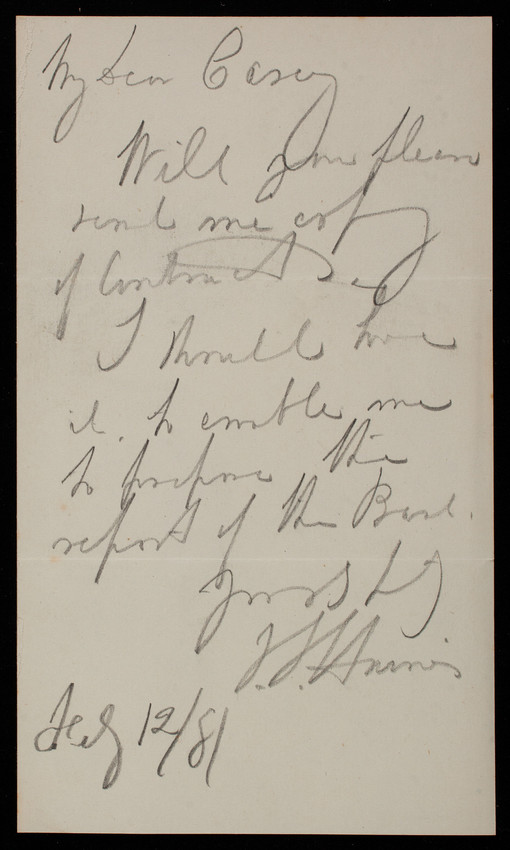 My dear Casey
Will you please
send me copy
of Contract
I should have
it, to enable me
to prepare the
report of the Board.
Yours
Feby 12/81